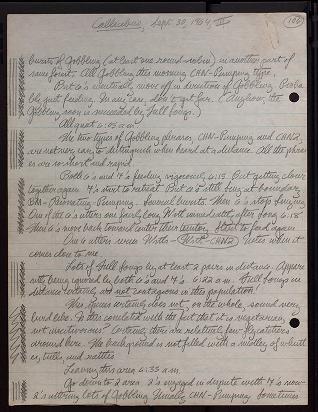 Callenbius, Sept. 30, 1964, III
(106)
bursts of Gobbling (at least one round-robin) in another part of
same forest. All Gobbling this morning CHN-Pumping type.
But 6's eventually move off in direction of Gobbling. Proba-
bly just feeding. In any case, don't get far. (Anyhow, the
Gobbling soon is succeeded by Full Songs.)
All quiet 6:05 a.m.
The two types of Gobbling phrases, CHN-Pumping and CHN2,
are not very easy to distinguish when heard at a distance. All the phras-
es are so short and rapid
Both 6's and 4's feeding vigorously 6:15. But getting closer
together again. 4's start to retreat. But 6's still sing at boundary.
BM-Bisonating-Pumping. Several bursts. Then 6's stop singing.
One of the 6's utters one fairly long Moan immediately after song 6:18
Then 6's move back toward center of their territory. Start to feed again.
One 6 utters series
Notes when it
comes close to me
Lots of Full Songs by at least 2 pairs in distance. Appare-
ntly being ignored by both 6's and 4's 6:22 a.m. Full Songs in
distance certainly not contagious in this population!
This species certainly does not, on the whole, sound very
bird like. Is this correlated with the fact that it is vegetarian,
not insectivorous? Certainly there are relatively few
around here. The background is not filled with a medley of whistl-
es, trills, and rattles
Leaving this area 6:35 a.m.
Go down to area 2 is engaged in dispute with 7's now
2's uttering lots of Gobbling. Usually CHN-Pumping. Sometimes